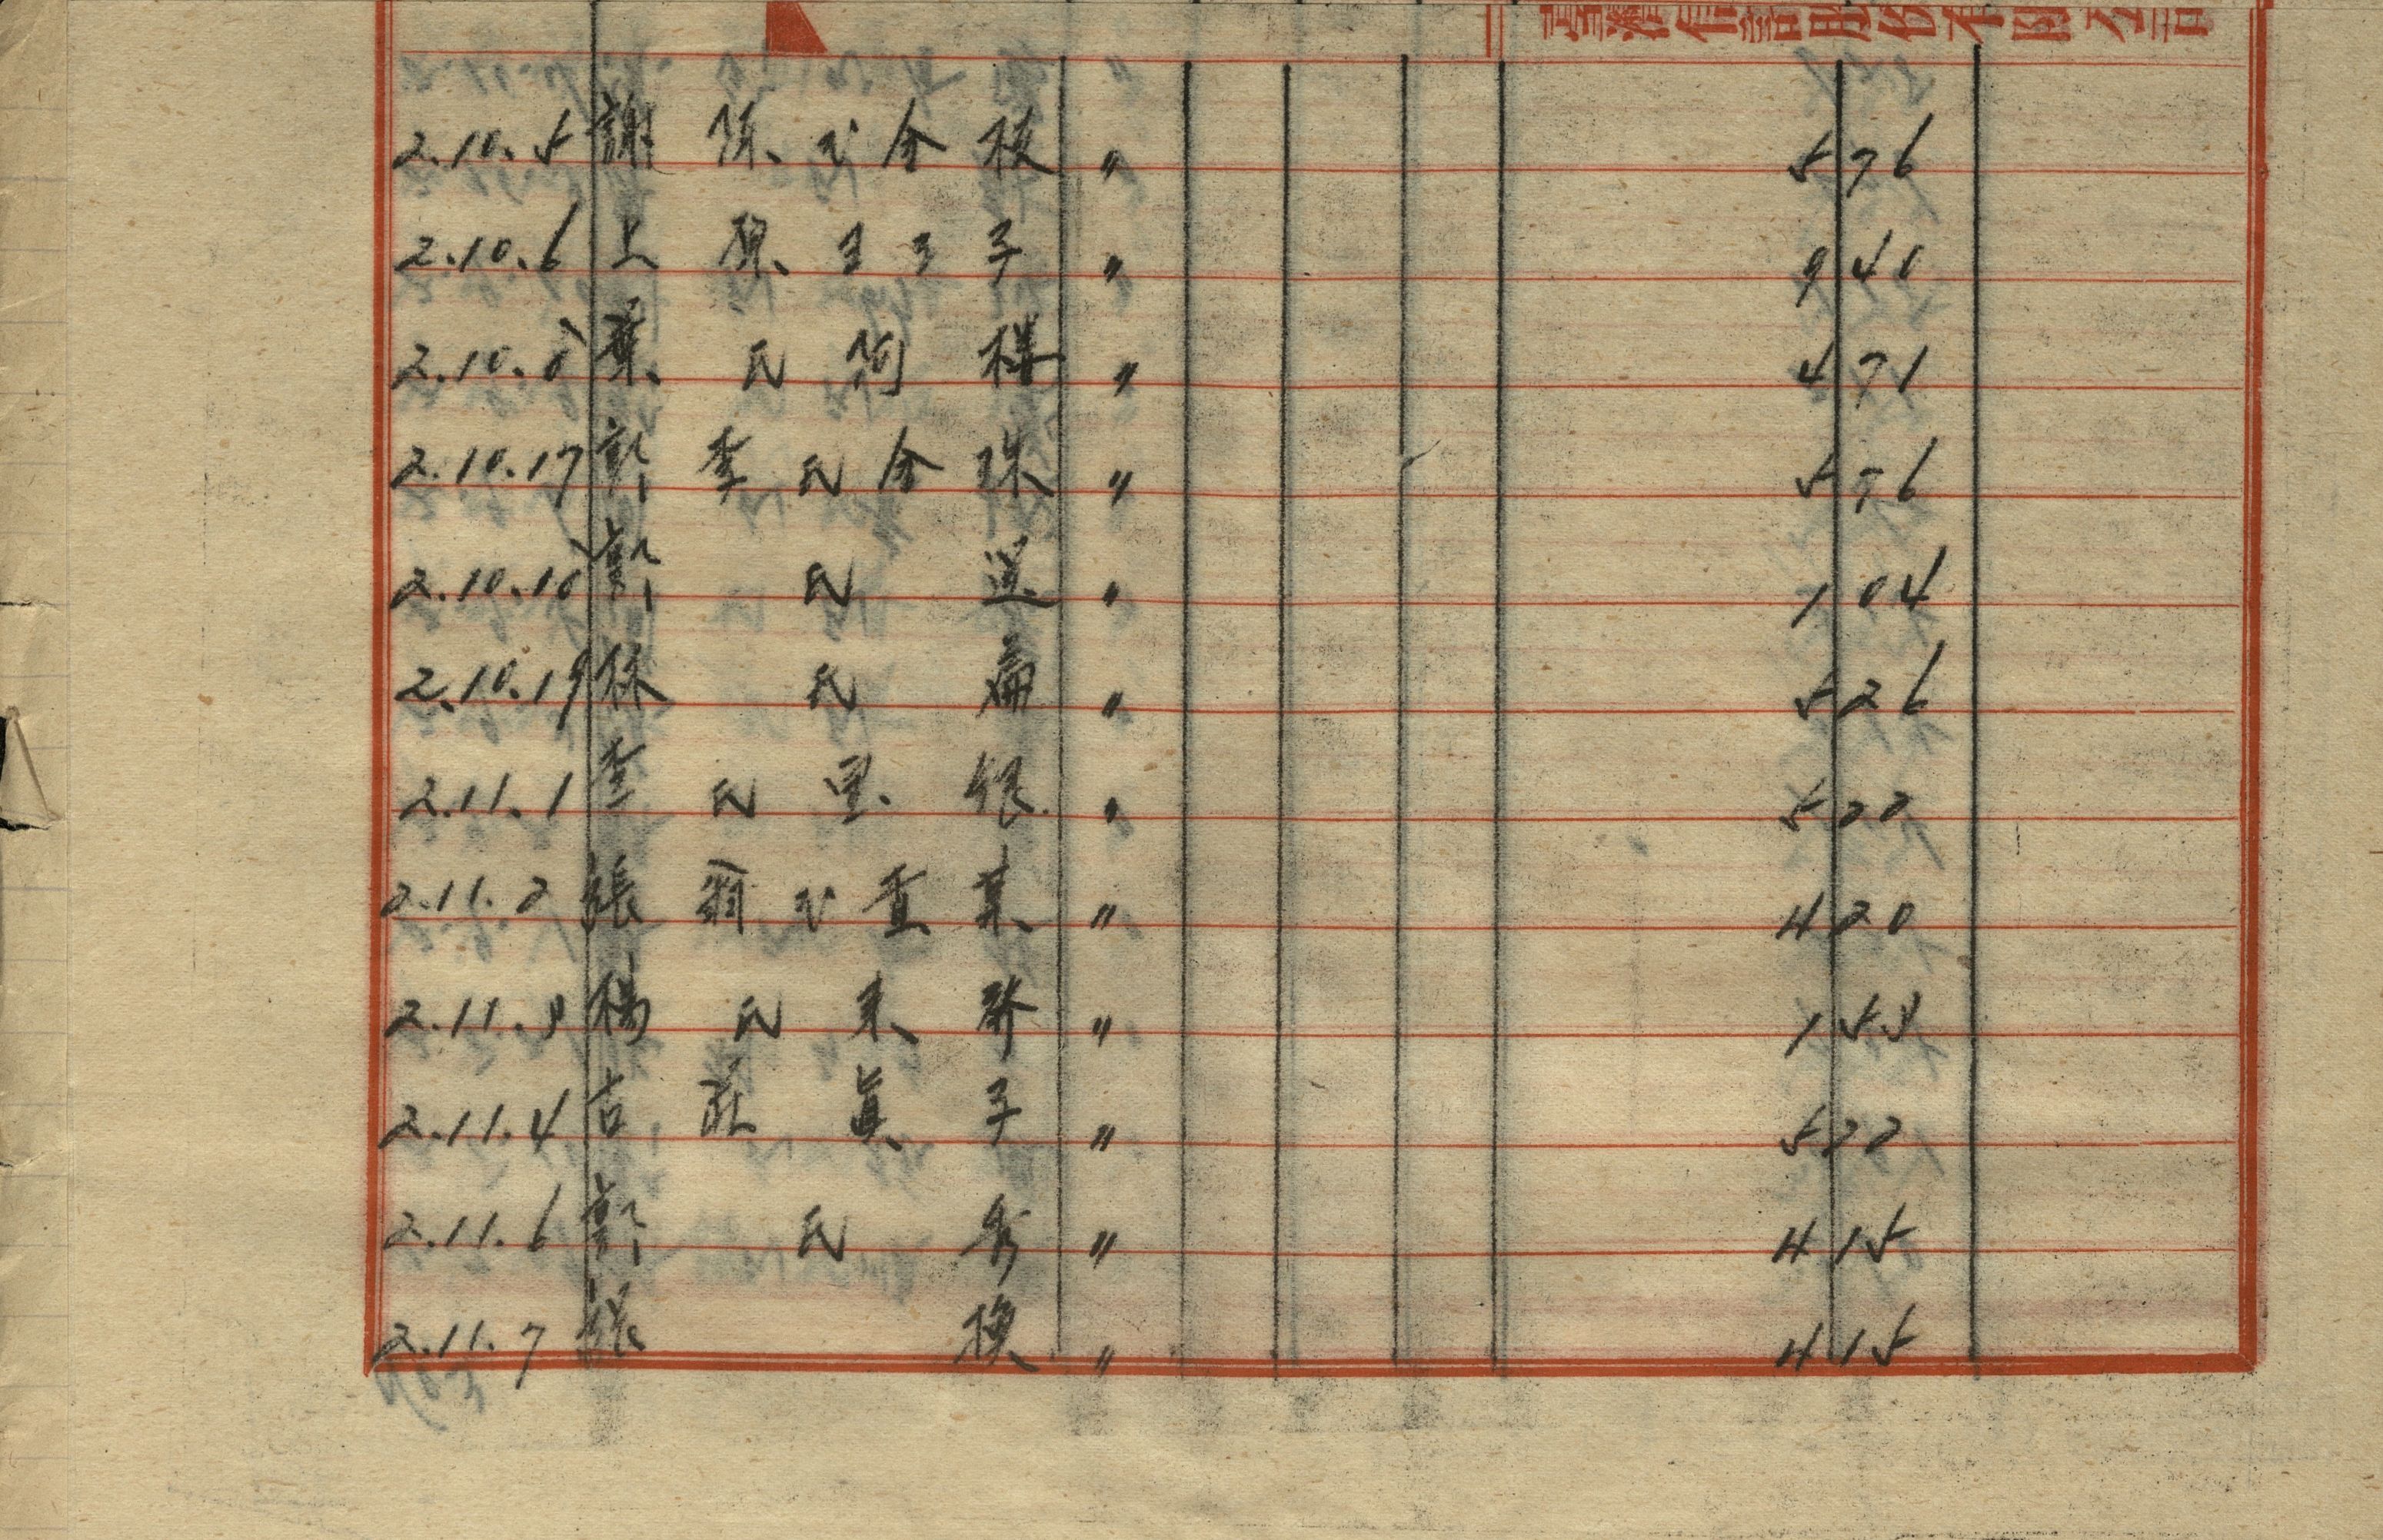 2.10.5 謝 陳氏金枝 〃 576
2.10.6 上原ヨヨ子 〃 940
2.10.8 葉氏阿樣 〃 471
2.10.17 彭李氏金珠 〃 576
2.10.18 彭氏送 〃 104
2.10.19 林氏扁 〃 526
2.11.1 李氏里銀 〃 522
2.11.2 張翁氏查某 〃 420
2.11.3 楊氏來 〃 153
2.11.4 古莊眞子 〃 522
2.11.6 彭氏秀 〃 415
2.11.7 張換 〃 415